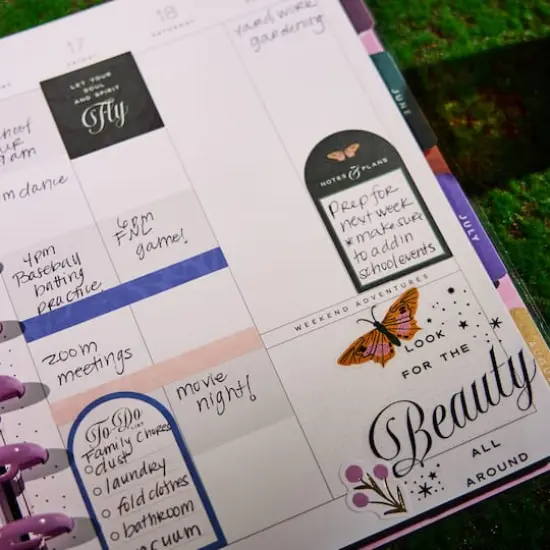 17
FRIDAY
18
SATURDAY
yard work
gardening
LET YOUR
SOUL
AND SPIRIT
Fly
dance
4pm
Baseball
batting
practice
6pm
FNL
game!
NOTES & PLANS
Prep for
next week
*make sure
to add in
school events
WEEKEND ADVENTURES
zoom
meetings
movie
night!
To Do
LIST
Family Chores
dust
laundry
fold clothes
bathroom
vacuum
LOOK
FOR THE
Beauty
ALL
AROUND
JUNE
JULY